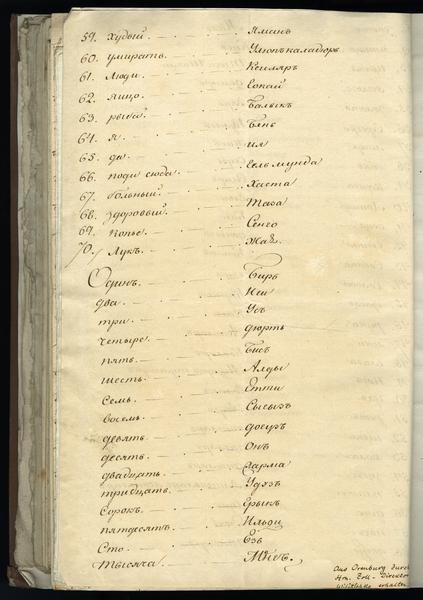 59. худый. Яманъ
60. умирать. Улюпъ каладыръ
61. люди. Кешляръ
62. яицо. Сокай
63. рыба. Балыкъ
64. я. Бянь
65. да. ия
66. поди сюда. Гель мунда
67. больный. Хаста
68. здоровый. Таза
69. копье. Сенго
70. Лукъ. Жай.
Одинъ. Биръ
два. Ики
три. Учь
четыре. дюртъ
пять. Бисъ
шесть. Алды
семь. Етти
восемь. Сысызъ
девять. докузъ
десять. Онъ
двадцать.
тридцать.
Сорокъ.
пятдесятъ.
Сто.
Тысяча. Мингъ.
Aus Orenburg durch
Hrn. Zoll-Director
erhalten.